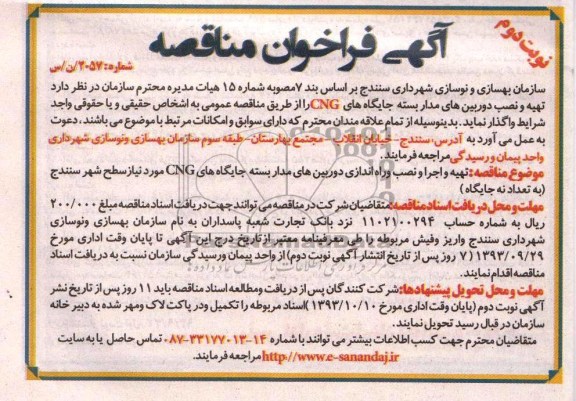 آگهی فراخوان مناقصه
نوبت دوم
شماره: ۲۰۵۷/ن/س
سازمان بهسازی و نوسازی شهرداری سنندج بر اساس بند ۷ مصوبه شماره ۱۵ هیات مدیره محترم سازمان در نظر دارد
تهیه و نصب دوربین های مدار بسته جایگاه های CNG را از طریق مناقصه عمومی به اشخاص حقیقی و یا حقوقی واجد
شرایط واگذار نماید. بدینوسیله از تمام علاقه مندان محترم که دارای سوابق و امکانات مرتبط با موضوع می باشند، دعوت
به عمل می آورد به آدرس: سنندج - خیابان انقلاب - مجتمع بهارستان - طبقه سوم سازمان بهسازی ونوسازی شهرداری
واحد پیمان و رسیدگی مراجعه فرمایند.
موضوع مناقصه: تهیه و اجرا و نصب وراه اندازی دوربین های مدار بسته جایگاه های CNG مورد نیاز سطح شهر سنندج
(به تعداد نه جایگاه)
مهلت و محل دریافت اسناد مناقصه: متقاضیان شرکت در مناقصه می توانند جهت دریافت اسناد مناقصه مبلغ ۲۰۰/۰۰۰
ریال به شماره حساب ۱۱۰۲۱۰۰۲۹۴ نزد بانک تجارت شعبه پاسداران به نام سازمان بهسازی ونوسازی
شهرداری سنندج واریز وفیش مربوطه با معرفینامه معتبر از تاریخ درج این آگهی تا پایان وقت اداری مورخ
۱۳۹۳/۰۹/۲۹ (۷ روز پس از تاریخ انتشار آگهی نوبت دوم) از واحد پیمان ورسیدگی سازمان نسبت به دریافت اسناد
مناقصه اقدام نمایند.
مهلت و محل تحویل پیشنهادها: شرکت کنندگان پس از دریافت ومطالعه اسناد مناقصه باید ۱۱ روز پس از تاریخ نشر
آگهی نوبت دوم (پایان وقت اداری مورخ ۱۳۹۳/۱۰/۱۰) اسناد مربوطه را تکمیل ودر پاکت لاک ومهر شده به دبیر خانه
سازمان در قبال رسید تحویل نمایند.
متقاضیان محترم جهت کسب اطلاعات بیشتر می توانند با شماره ۱۴-۳۳۱۷۷۰۱۳-۰۸۷ تماس حاصل یا به سایت
http://www.e-sanandaj.ir مراجعه فرمایند.